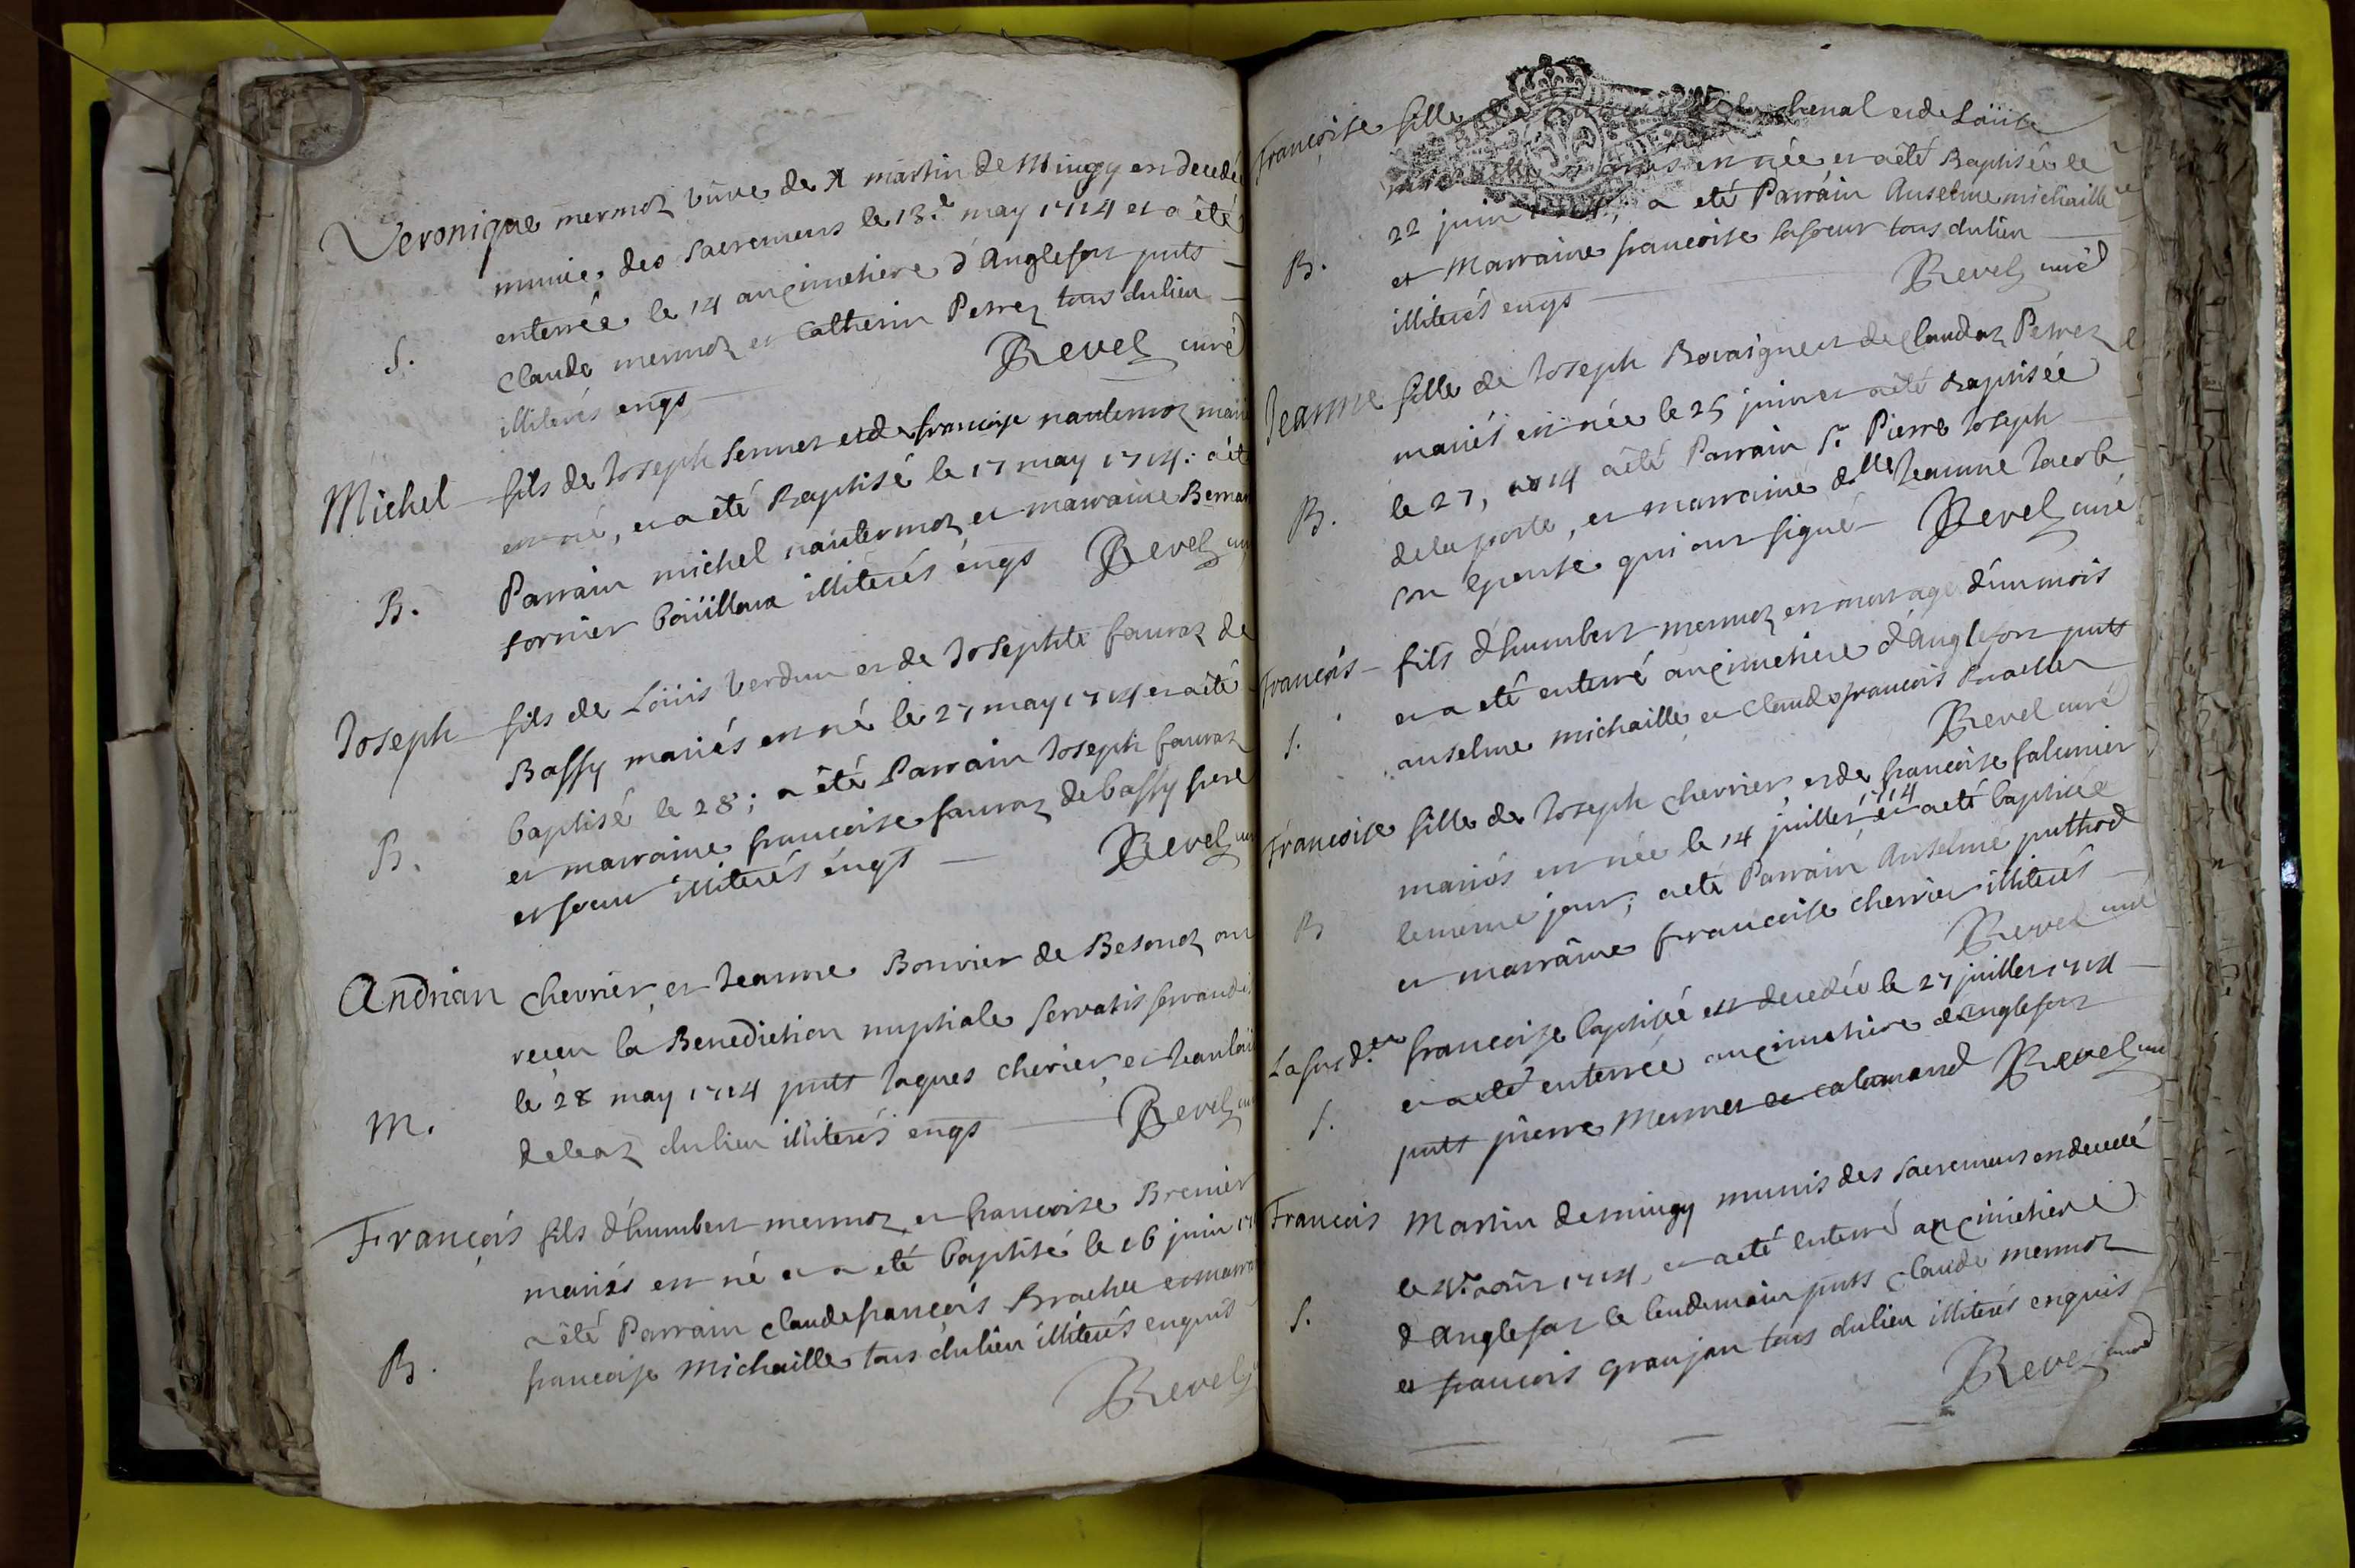 Veronique mermoz vüve de martin de Mingy est decedée
munie des sacremens le 13.e may 1714 et a été
S. enterrée le 14 au cimetiere d'Anglefort pnts
Claude mermoz et Catherin Perrez tous du lieu
illiterés enqs Revel curé
Michel fils de Joseph Sennet et de francoise nantermoz mariés
est né, et a été Baptisé le 17 may 1714: a été
B. Parrain michel nantermoz et marraine Bernar
Fornier boüilloux illiterés enqs Revel
Joseph fils de Loüis Verdun et de Josephte fauraz de
Bassy mariés est né le 27 may 1714 et a été
B. baptisé le 28; a été Parrain Joseph fauraz
et marraine francoise fauraz de bassy frere
et soeur illiterés enqs Revel
Andrian Chevrier et Jeanne Bouvier de Besonoz ont
receu la Benediction nuptiale servatis servandis
M. le 28 may 1714 pnts Jaques chevrier et Jeanloüis
deleaz du lieu illiterés enqs Revel
François fils d'humbert mermoz et francoise Brenier
mariés est né et a eté baptisé le 16 juin
a été Parrain Claude françois Brachet et marraine
B. francoise Michaille tous du lieu illiterés enquis
Revel
Francoise fille de chenal et de Loüise
est née et a été Baptisée le
22 juin 1714, a eté Parrain Anselme michaille
B. et Marraine francoise sa soeur tous du lieu
illiterés enqs Revel curé
Jeanne fille de Joseph Bovaigne et de Claudaz Perrez
mariés est née le 25 juin et a été Baptisée
B. le 27, 1714 a été Parrain Sr. Pierre Joseph
dela porte, et marraine d.lle Jeanne Jacob
son epouse qui ont signé Revel curé
François fils d'humbert mermoz est mort agé d'un mois
et a eté enterré au cimetiere d'Anglefort pnts
S. anselme michaille et Claude francois Brachet
Revel curé
Francoise fille de Joseph chevrier et de francoise falconier
mariés est née le 14 juillet 1714 et a eté baptisée
B le meme jour; a eté Parrain Anselme puthod
et marraine francoise chevrier illiterés
Revel curé
La susd.te francoise baptisée est decedée le 27 juillet 1714
et a eté enterrée au cimetiere d'Anglefort
S. pnts pierre Mermet et calamand Revel
Francois Martin de mingy munis des sacremens est decedé
le 4.e aoust 1714, et a eté enterré au cimetiere
S. d'Anglefort le lendemain pnts Claude mermoz
et francois granjan tous du lieu illiterés enquis
Revel curé